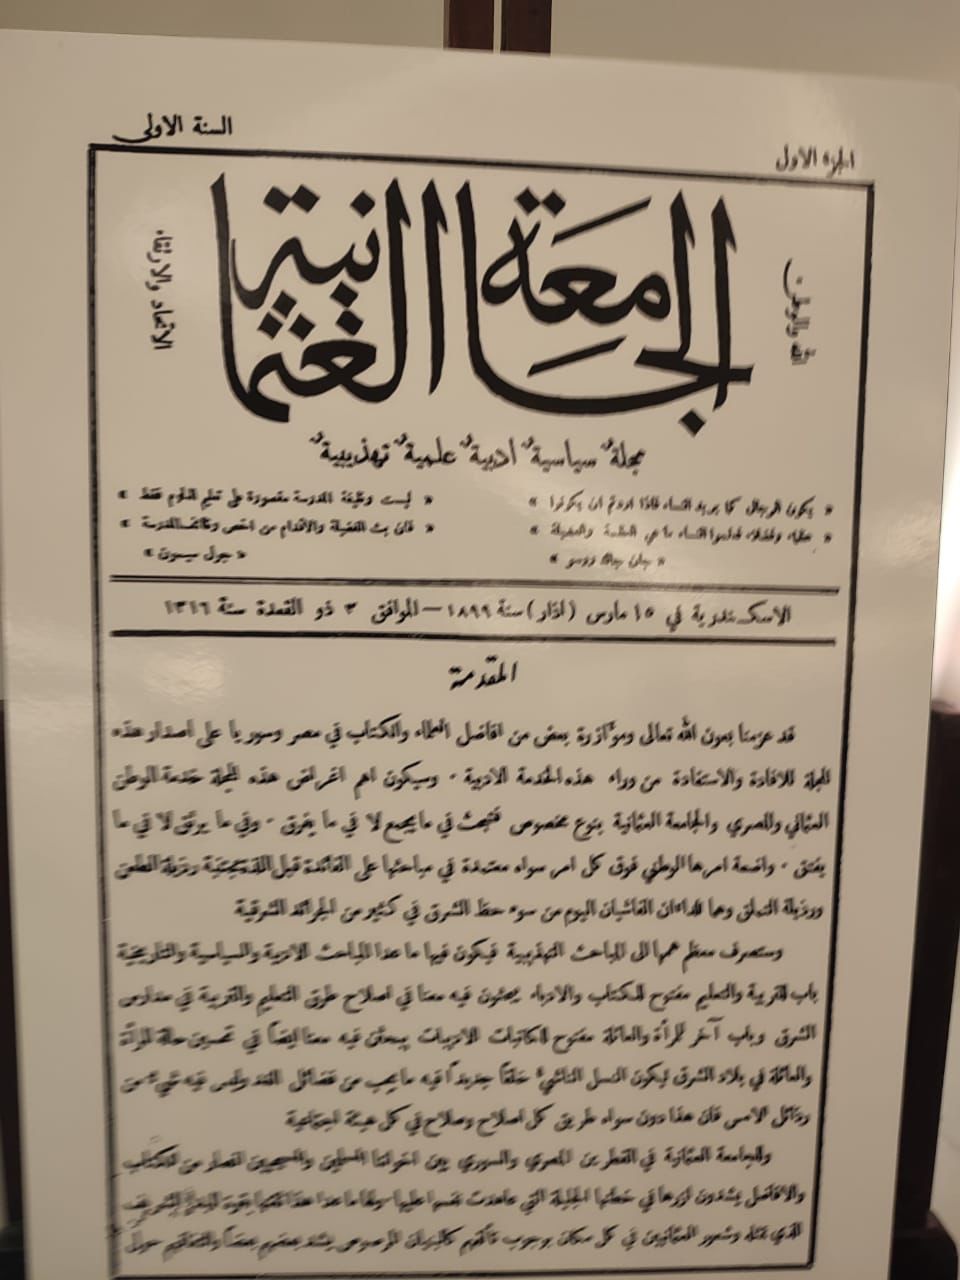 الجزء الاول
السنة الاولى
الله والوطن
الجامعة العثمانية
الاتحاد والارتقاء
مجلةٌ سياسيةٌ ادبيةٌ علميةٌ تهذيبيةٌ
« يكون الرجال كما يريد النساء فاذا اردتم ان يكونوا »
« عظماء وفضلاء فعلموا النساء ما هي العظمة والفضيلة »
« جان جاك روسو »
« ليست وظيفة المدرسة مقصورة على تعليم العلوم فقط »
« فان بث الفضيلة والاقدام من اخص وظائف المدرسة »
« جول سيمون »
الاسكندرية في ١٥ مارس (اذار) سنة ١٨٩٩ – الموافق ٣ ذو القعدة سنة ١٣١٦
المقدمة
قد عزمنا بعون الله تعالى وموآزرة بعض من افاضل العلماء والكتاب في مصر وسوريا على اصدار هذه
المجلة للافادة والاستفادة من وراء هذه الخدمة الادبية . وسيكون اهم اغراض هذه المجلة خدمة الوطن
العثماني والمصري والجامعة العثمانية بنوع مخصوص فتبحث في ما يجمع لا في ما يفرق . وفي ما يرتق لا في ما
يفتق . واضعة امرها الوطني فوق كل امر سواه معتمدة في مباحثها على الفائدة قبل ورذيلة الطعن
ورذيلة التملق وهما الداءان الفاشيان اليوم من سوء حظ الشرق في كثير من الجرائد الشرقية
وستصرف معظم همها الى المباحث التهذيبية فيكون فيها ما عدا المباحث الادبية والسياسية والتاريخية
باب للتربية والتعليم مفتوح للكتاب والادباء يبحثون فيه معنا في اصلاح طرق التعليم والتربية في مدارس
الشرق وباب آخر للمرأة والعائلة مفتوح للكاتبات الاديبات يبحثن فيه معنا ايضاً في تحسين حالة المرأة
والعائلة في بلاد الشرق ليكون النسل الناشىء خلقاً جديداً فيه ما يجب من فضائل الغد وليس فيه شيء من
رذائل الامس فان هذا دون سواه طريق كل اصلاح وصلاح في كل هيئة اجتماعية
وللجامعة العثمانية في القطرين المصري والسوري بين اخواننا المسلمين والمسيحيين انصار من الكتاب
والافاضل يشدون ازرها في خطتها الجليلة التي عاهدت نفسها عليها
الذي تمثله وشعور العثمانيين في كل مكان بوجوب تآلفهم كالبنيان المرصوص يشد بعضهم بعضاً والتفافهم حول